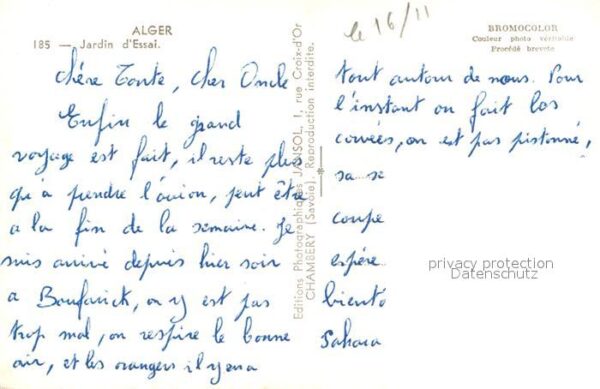 ALGER
185 — Jardin d'Essai.
Chère Tante, cher Oncle
Enfin le grand
voyage est fait, il reste plus
qu a prendre l'avion, peut être
a la fin de la semaine. Je
suis arrivé depuis hier soir
a Boufarick, on y est pas
trop mal, on respire le bonne
air, et les orangers il y en a
Editions Photographiques JANSOL, 1, rue Croix-d'Or
CHAMBERY (Savoie). Reproduction interdite.
le 16/11
BROMOCOLOR
Couleur photo véritable
Procédé breveté
tout autour de nous. Pour
l'instant on fait les
corvées, on est pas pistonné,
sa se
coupe
espére
bientô
Sahara
privacy protection
Datenschutz